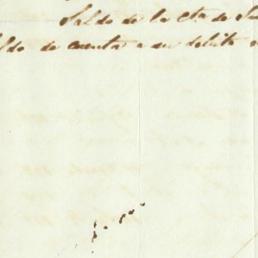 Saldo de la cta de
ldo de cuentas a su debito